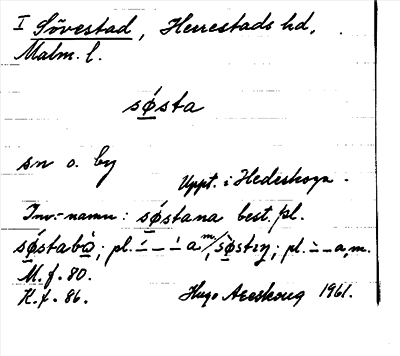 I Sövestad, Herrestads hd,
Malm. l.
søsta
sn o. by
Uppt. i Hedeskoga.
Inv.-namn: søstana best. pl.
søstabò; pl. –́ – –́ a m/, søstiŋ; pl. –̀ – a, m.
M. f. 80.
K. f. 86.
Hugo Areskoug 1961.